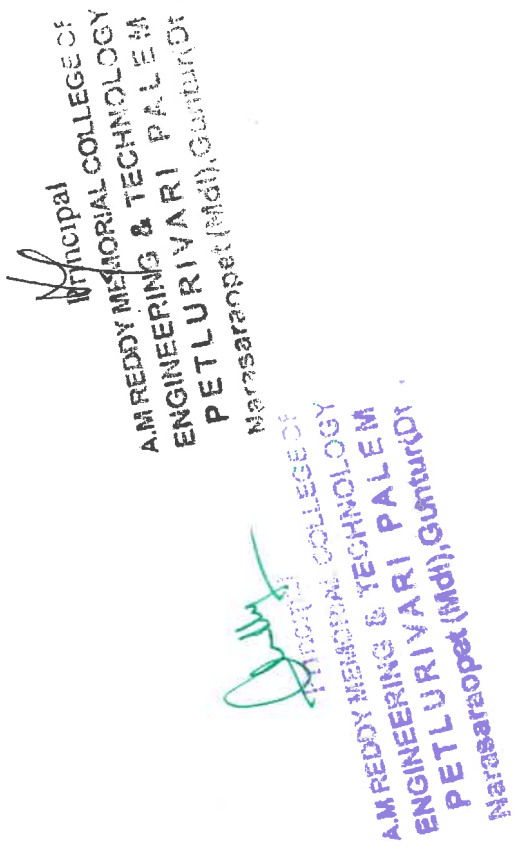 Principal
A.M REDDY MEMORIAL COLLEGE OF
ENGINEERING & TECHNOLOGY
PETLURIVARI PALEM
Narasaraopet (Mdl), Guntur(Dt
Principal
A.M REDDY MEMORIAL COLLEGE OF
ENGINEERING & TECHNOLOGY
PETLURIVARI PALEM
Narasaraopet (Mdl), Guntur(Dt